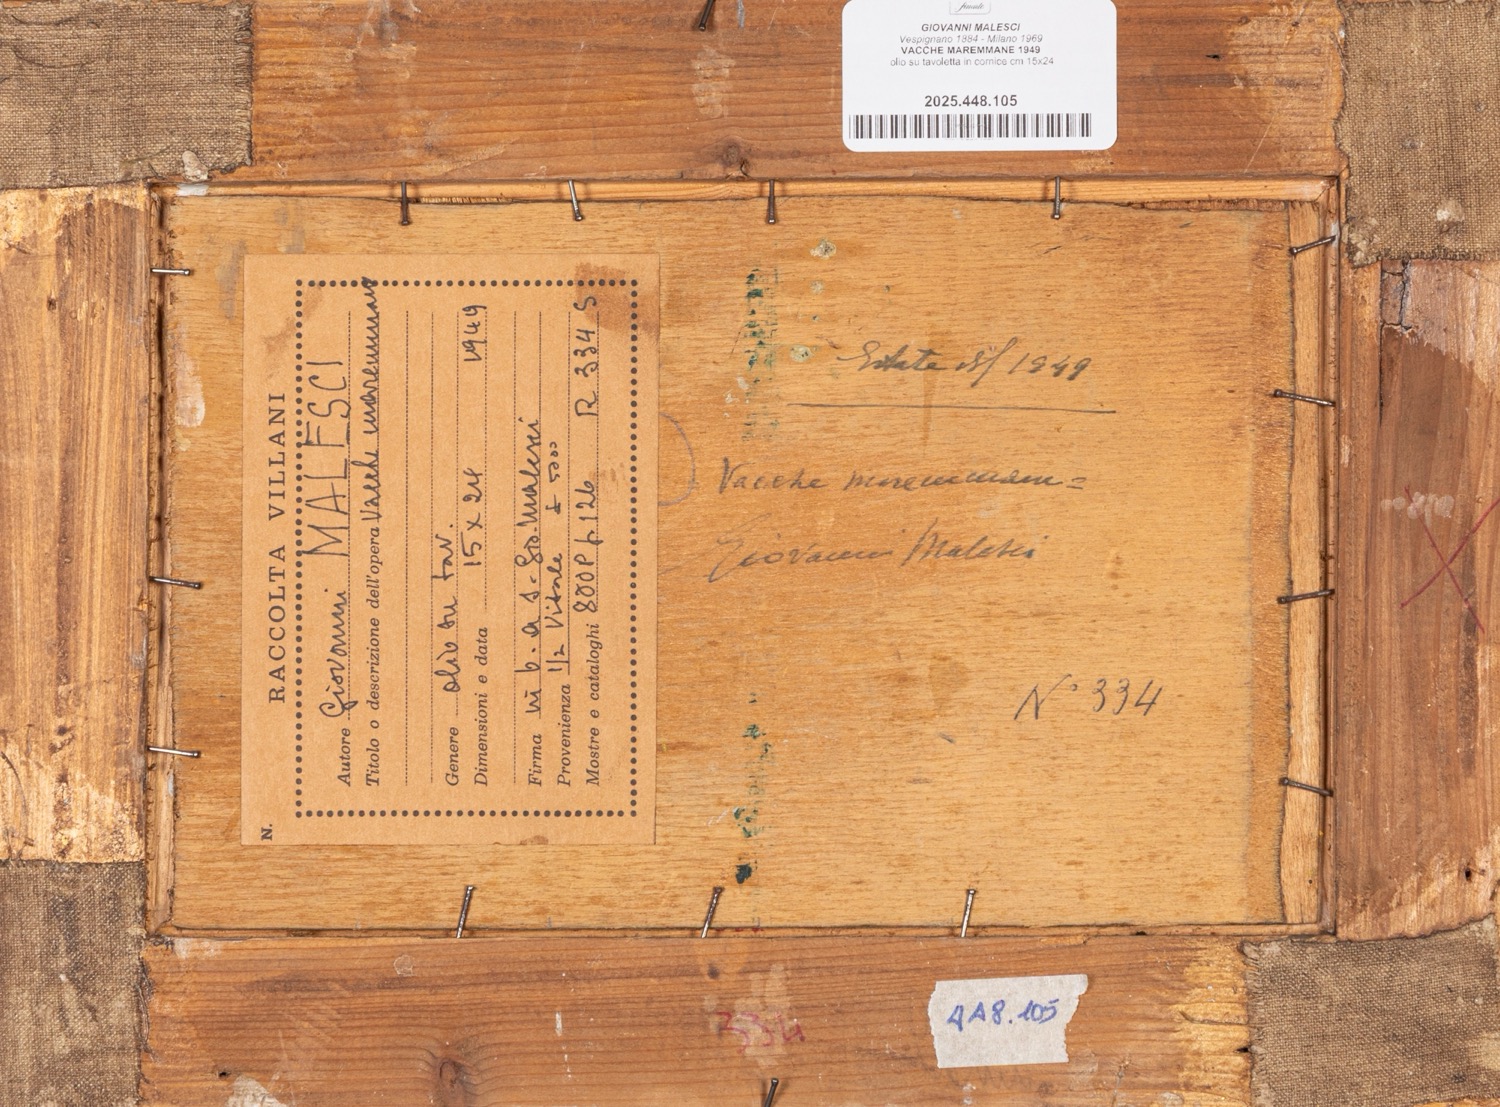 GIOVANNI MALESCI
Vespignano 1884 - Milano 1969
VACCHE MAREMMANE 1949
olio su tavoletta in cornice cm 15x24
2025.448.105
N.
RACCOLTA VILLANI
Autore Giovanni MALESCI
Titolo o descrizione dell'opera Vacche maremmane
Genere olio su tav.
Dimensioni e data 15 x 24 1949
Firma in b. a s. Gio. Malesci
Provenienza 1/2 Vitale £ 5000
Mostre e cataloghi 800P p 126 R 334 S
Estate 1949
Vacche maremmane=
Giovanni Malesci
N° 334
334
448.105